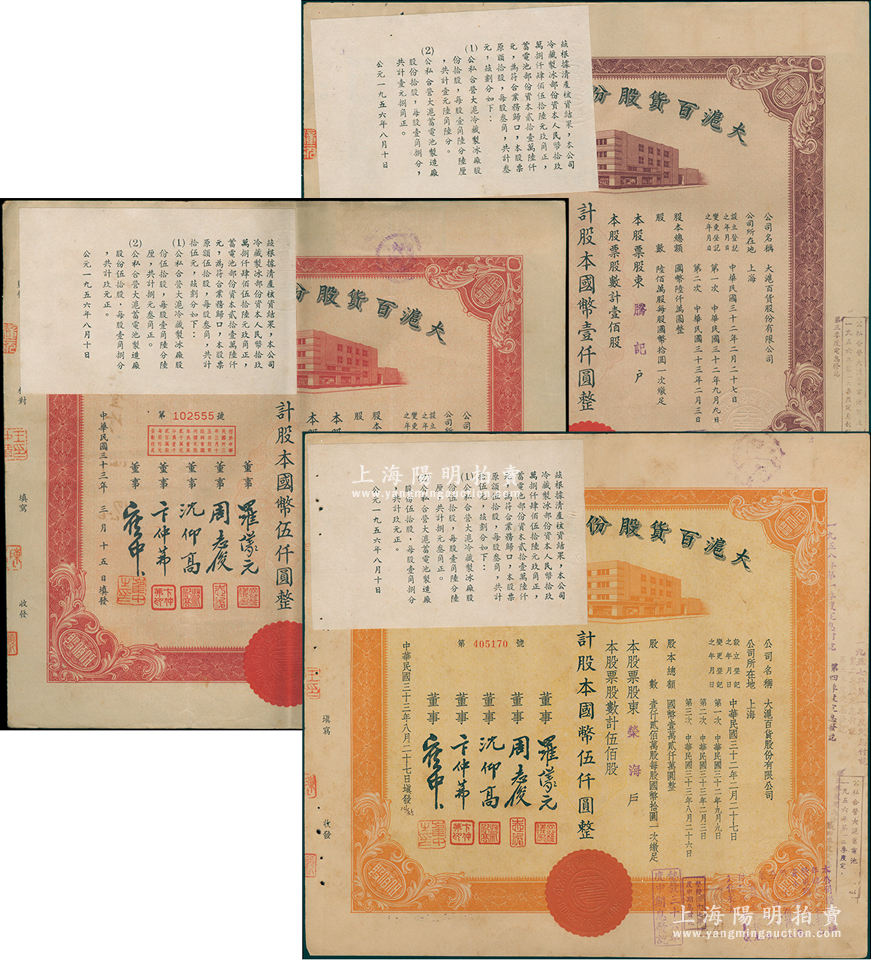 茲根據清產核資結果，本公司
冷藏製冰部份資本人民幣拾玖
萬捌仟肆佰伍拾陸元玖角正，
蓄電池部份資本貳拾壹萬陸仟
元，為符合業務歸口，本股票
原額拾股，每股叁角，共計叁
元，茲劃分如下：
(1)公私合營大滬冷藏製冰廠股
份拾股，每股壹角陸分陸厘
，共計壹元陸角陸分。
(2)公私合營大滬蓄電池製造廠
股份拾股，每股壹角捌分，
共計壹元捌角正。
公元一九五六年八月十日
大滬百貨股份
公司名稱　大滬百貨股份有限公司
公司所在地　上海
設立登記之年月日　中華民國三十二年二月二十七日
變更登記之年月日　第一次　中華民國三十二年九月九日
第二次　中華民國三十三年二月三日
股本總額　國幣陸仟萬圓整
股數　陸佰萬股每股國幣拾圓一次繳足
本股票股東　騰記　戶
本股票股數計壹佰股
計股本國幣壹仟圓整
茲根據清產核資結果，本公司
冷藏製冰部份資本人民幣拾玖
萬捌仟肆佰伍拾陸元玖角正，
蓄電池部份資本貳拾壹萬陸仟
元，為符合業務歸口，本股票
原額伍拾股，每股叁角，共計
拾伍元，茲劃分如下：
(1)公私合營大滬冷藏製冰廠股
份伍拾股，每股壹角陸分陸
厘，共計捌元叁角正。
(2)公私合營大滬蓄電池製造廠
股份伍拾股，每股壹角捌分
，共計玖元正。
公元一九五六年八月十日
大滬百貨股份
計股本國幣伍仟圓整
第 102555 號
董事　羅㵾元
董事　周志俊
董事　沈仰高
董事　卞仲茀
董事
中華民國三十三年 三月十五日填發
校對
填寫
收發
茲根據清產核資結果，本公司
冷藏製冰部份資本人民幣拾玖
萬捌仟肆佰伍拾陸元玖角正，
蓄電池部份資本貳拾壹萬陸仟
元，為符合業務歸口，本股票
原額伍拾股，每股叁角，共計
拾伍元，茲劃分如下：
(1)公私合營大滬冷藏製冰廠股
份伍拾股，每股壹角陸分陸
厘，共計捌元叁角正。
(2)公私合營大滬蓄電池製造廠
股份伍拾股，每股壹角捌分
，共計玖元正。
公元一九五六年八月十日
大滬百貨股份
公司名稱　大滬百貨股份有限公司
公司所在地　上海
設立登記之年月日　中華民國三十二年二月二十七日
變更登記之年月日　第一次　中華民國三十二年九月九日
第二次　中華民國三十三年二月三日
第三次　中華民國三十三年八月二十六日
股本總額　國幣壹萬貳仟萬圓整
股數　壹仟貳佰萬股每股國幣拾圓一次繳足
本股票股東　榮海　戶
本股票股數計伍佰股
計股本國幣伍仟圓整
第 405170 號
董事　周志俊
董事　沈仰高
董事　卞仲茀
董事
中華民國三十三年八月二十七日填發
填寫
收發
上海陽明拍賣
www.yangmingauction.com
上海陽明拍賣
www.yangmingauction.com